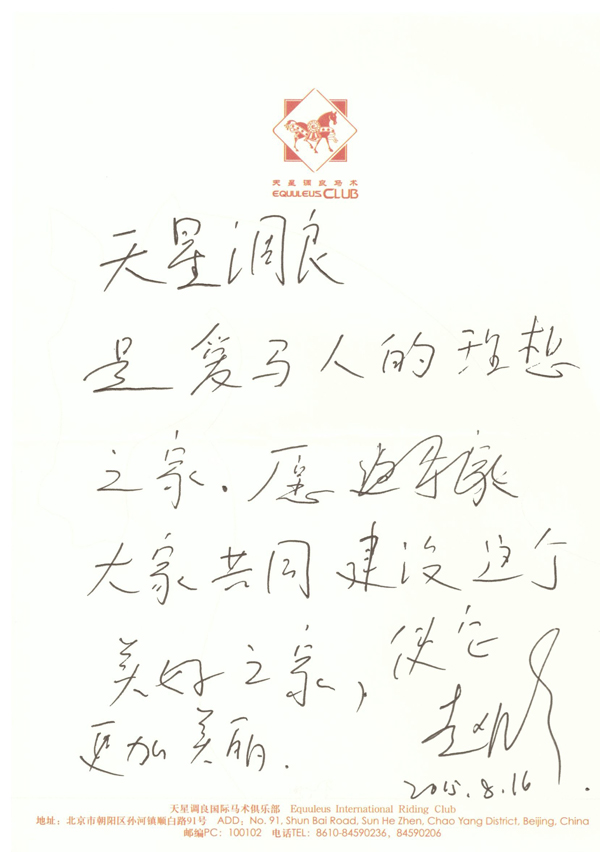 天星调良马术
EQUULEUS CLUB
天星调良
是爱马人的理想
之家.愿
大家共同建设这个
美好之家,使它
更加美丽.
赵
2015.8.16.
天星调良国际马术俱乐部 Equuleus International Riding Club
地址:北京市朝阳区孙河镇顺白路91号 ADD: No. 91, Shun Bai Road, Sun He Zhen, Chao Yang District, Beijing, China
邮编PC: 100102 电话TEL: 8610-84590236, 84590206